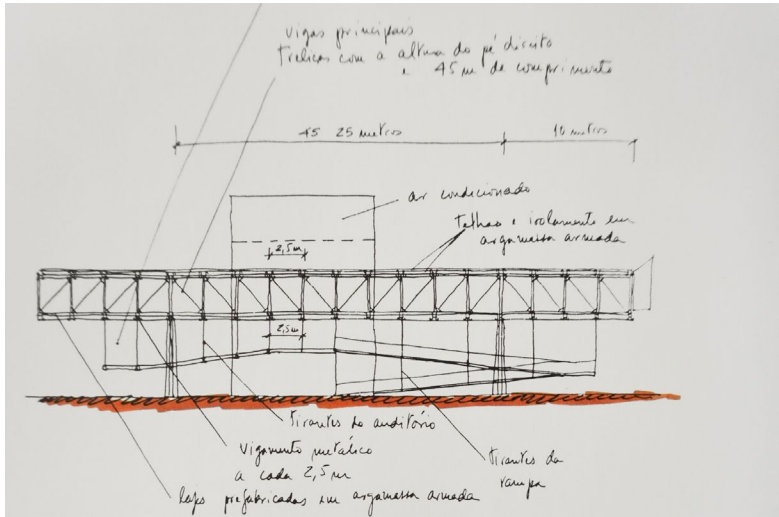 vigas principais
treliças com a altura do pé direito
e 45 m de comprimento
45 25 metros
10 metros
ar condicionado
telhas e isolamento em
argamassa armada
2,5m
2,5m
tirantes do auditório
vigamento metálico
a cada 2,5 m
tirantes da
rampa
lajes prefabricadas em argamassa armada